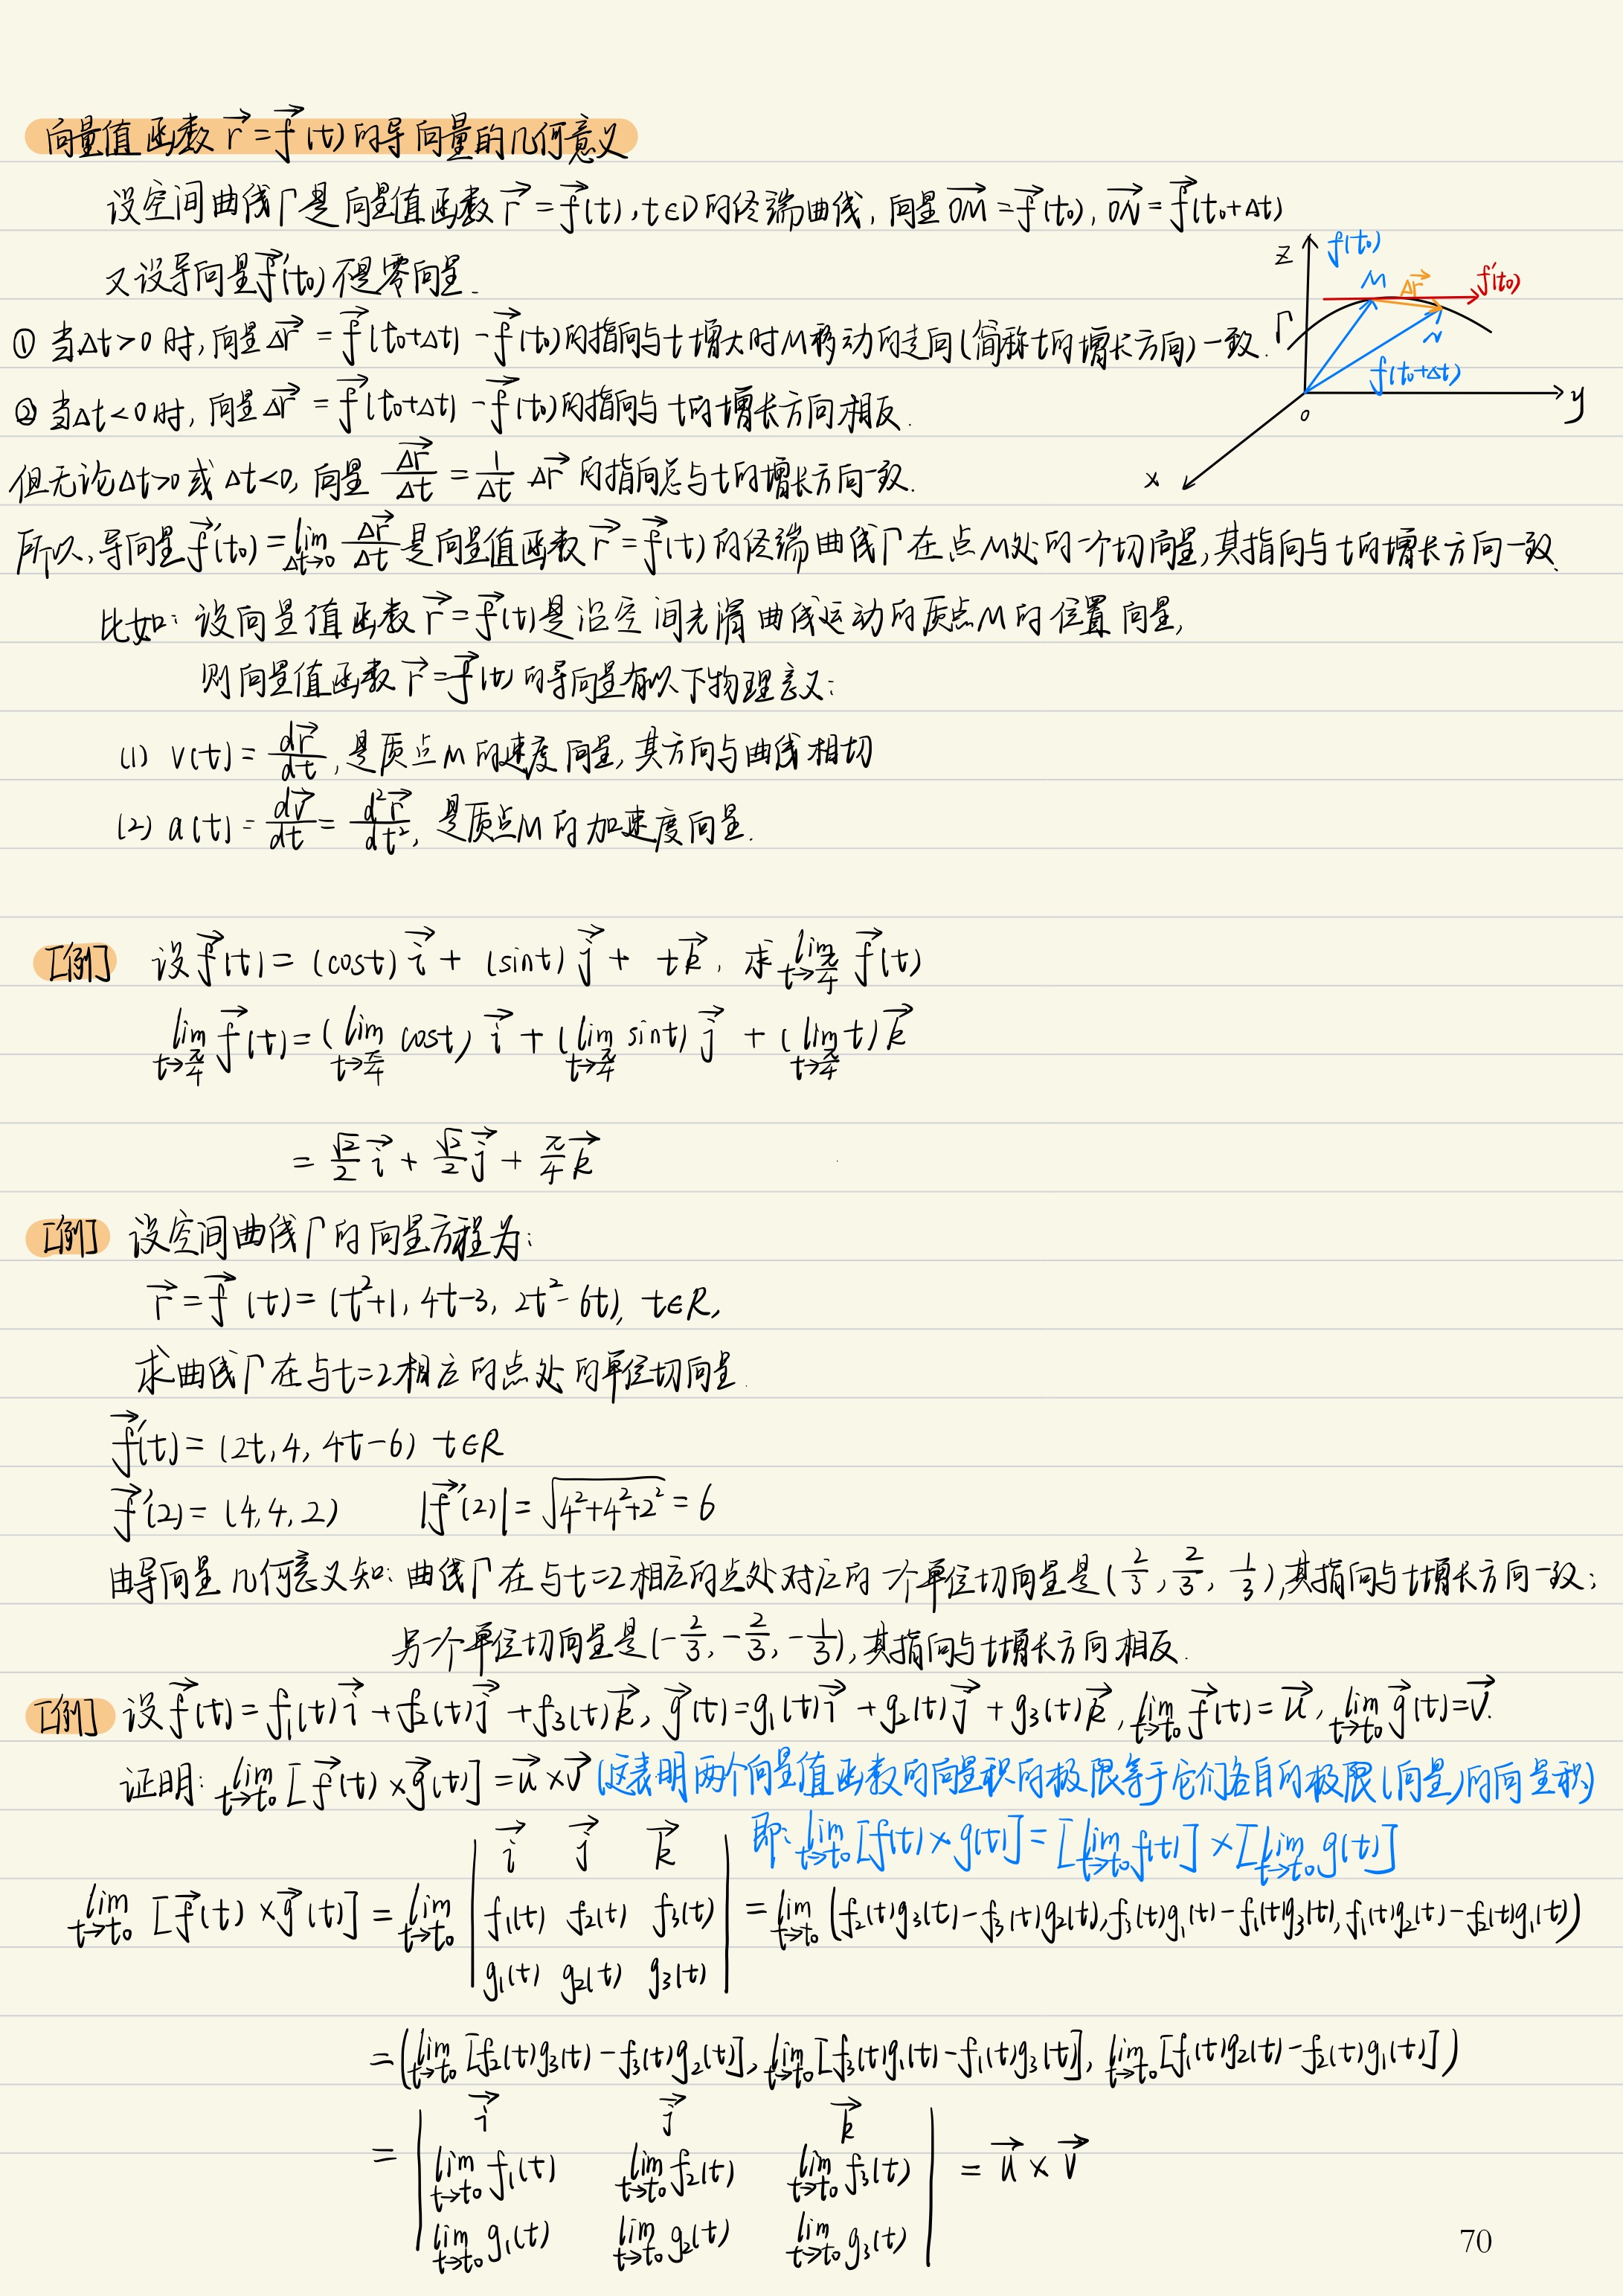 向量值函数 r⃗ = f⃗(t) 的导向量的几何意义
设空间曲线Γ是向量值函数 r⃗ = f⃗(t), t∈D 的终端曲线, 向量 OM⃗ = f⃗(t₀), ON⃗ = f⃗(t₀+Δt)
又设导向量 f⃗′(t₀) 不是零向量.
z f(t₀)
M Δr⃗ f′(t₀)
Γ N
f(t₀+Δt)
o y
x
① 当Δt>0 时, 向量 Δr⃗ = f⃗(t₀+Δt) - f⃗(t₀) 的指向与 t 增大时M移动的走向(简称t的增长方向)一致.
② 当Δt<0 时, 向量 Δr⃗ = f⃗(t₀+Δt) - f⃗(t₀) 的指向与 t的增长方向相反.
但无论Δt>0 或 Δt<0, 向量 Δr⃗/Δt = 1/Δt Δr⃗ 的指向总与t的增长方向一致.
所以, 导向量 f⃗′(t₀) = lim_{Δt→0} Δr⃗/Δt 是向量值函数 r⃗ = f⃗(t) 的终端曲线Γ在点M处的一个切向量, 其指向与t的增长方向一致.
比如: 设向量值函数 r⃗ = f⃗(t) 是沿空间光滑曲线运动的质点M的位置向量,
则向量值函数 r⃗ = f⃗(t) 的导向量有以下物理意义:
(1) v(t) = dr⃗/dt, 是质点M的速度向量, 其方向与曲线相切
(2) a(t) = dv⃗/dt = d²r⃗/dt², 是质点M的加速度向量.
[例] 设 f⃗(t) = (cost) i⃗ + (sint) j⃗ + t k⃗, 求 lim_{t→π/4} f⃗(t)
lim_{t→π/4} f⃗(t) = (lim_{t→π/4} cost) i⃗ + (lim_{t→π/4} sint) j⃗ + (lim_{t→π/4} t) k⃗
= √2/2 i⃗ + √2/2 j⃗ + π/4 k⃗
[例] 设空间曲线Γ的向量方程为:
r⃗ = f⃗(t) = (t²+1, 4t-3, 2t²-6t), t∈R,
求曲线Γ在与t=2相应的点处的单位切向量.
f⃗′(t) = (2t, 4, 4t-6) t∈R
f⃗′(2) = (4, 4, 2) |f⃗′(2)| = √(4²+4²+2²) = 6
由导向量几何意义知: 曲线Γ在与t=2相应的点处对应的一个单位切向量是 (2/3, 2/3, 1/3), 其指向与t增长方向一致;
另一个单位切向量是 (-2/3, -2/3, -1/3), 其指向与t增长方向相反.
[例] 设 f⃗(t) = f₁(t) i⃗ + f₂(t) j⃗ + f₃(t) k⃗, g⃗(t) = g₁(t) i⃗ + g₂(t) j⃗ + g₃(t) k⃗, lim_{t→t₀} f⃗(t) = u⃗, lim_{t→t₀} g⃗(t) = v⃗.
证明: lim_{t→t₀} [f⃗(t) × g⃗(t)] = u⃗ × v⃗ (这表明两个向量值函数的向量积的极限等于它们各自的极限(向量)的向量积)
即: lim_{t→t₀} [f(t) × g(t)] = [lim_{t→t₀} f(t)] × [lim_{t→t₀} g(t)]
lim_{t→t₀} [f⃗(t) × g⃗(t)] = lim_{t→t₀} | i⃗ j⃗ k⃗ ; f₁(t) f₂(t) f₃(t) ; g₁(t) g₂(t) g₃(t) | = lim_{t→t₀} (f₂(t)g₃(t) - f₃(t)g₂(t), f₃(t)g₁(t) - f₁(t)g₃(t), f₁(t)g₂(t) - f₂(t)g₁(t))
= (lim_{t→t₀} [f₂(t)g₃(t) - f₃(t)g₂(t)], lim_{t→t₀} [f₃(t)g₁(t) - f₁(t)g₃(t)], lim_{t→t₀} [f₁(t)g₂(t) - f₂(t)g₁(t)])
= | i⃗ j⃗ k⃗ ; lim_{t→t₀} f₁(t) lim_{t→t₀} f₂(t) lim_{t→t₀} f₃(t) ; lim_{t→t₀} g₁(t) lim_{t→t₀} g₂(t) lim_{t→t₀} g₃(t) | = u⃗ × v⃗
70